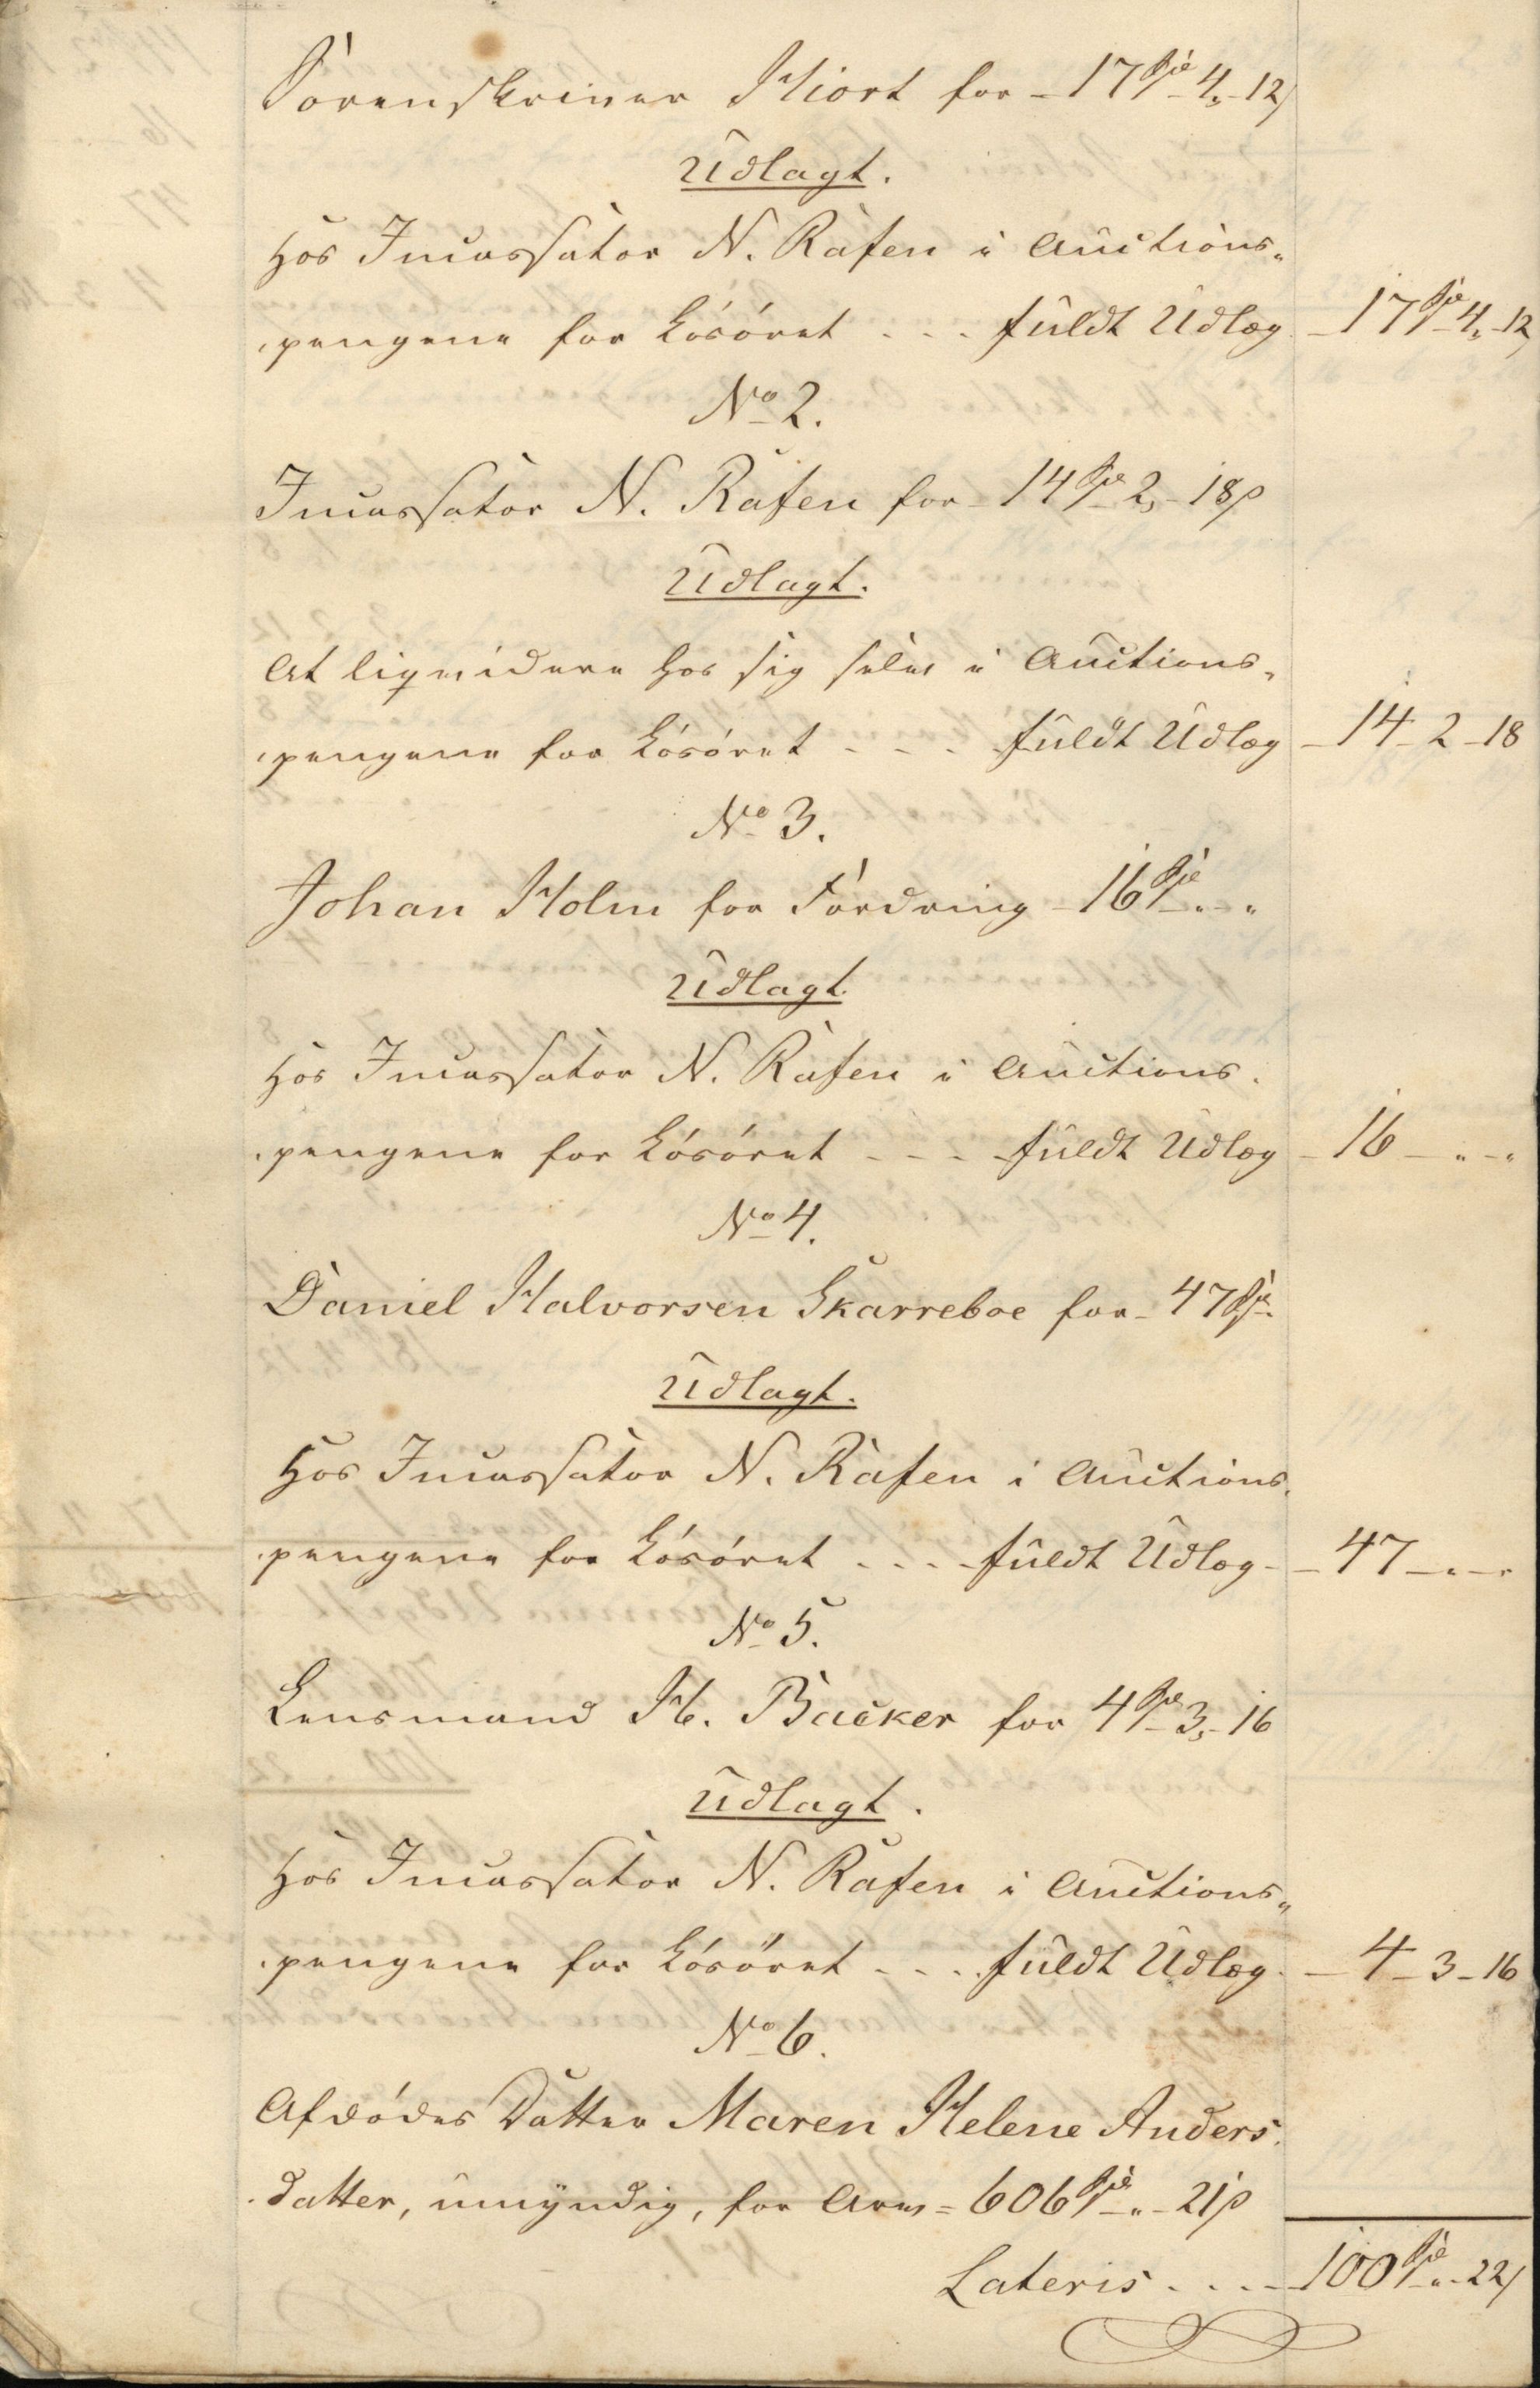 Sorenskriver Hiort for - 17 Spd 4 - 12 s
Udlagt.
Hos Incassator N. Rafen i Auctions-
pengene for Løsøret - - - fuldt Udlæg - 17 Spd 4 - 12 s
No 2.
Incassator N. Rafen for - 14 Spd 2 - 18 s
Udlagt.
At liqvidere hos sig selv i Auctions-
pengene for Løsøret - - - fuldt Udlæg - 14 - 2 - 18
No 3.
Johan Holm for Fordring - 16 Spd - " - "
Udlagt
Hos Incassator N. Rafen i Auctions-
pengene for Løsøret - - - fuldt Udlæg - 16 - " - "
No 4.
Daniel Halvorsen Skarreboe for - 47 Spd.
Udlagt.
Hos Incassator N. Rafen i Auctions-
pengene for Løsøret - - - fuldt Udlæg - 47 - " - "
No 5.
Lensmand H. Backer for 4 Spd 3 - 16
Udlagt.
Hos Incassator N. Rafen i Auctions-
pengene for Løsøret - - - fuldt Udlæg - 4 - 3 - 16
No 6.
Afdødes Datter Maren Helene Anders-
datter, umyndig, for Arv = 606 Spd - " - 21 s
Lateris - - - 100 Spd " - 22 s